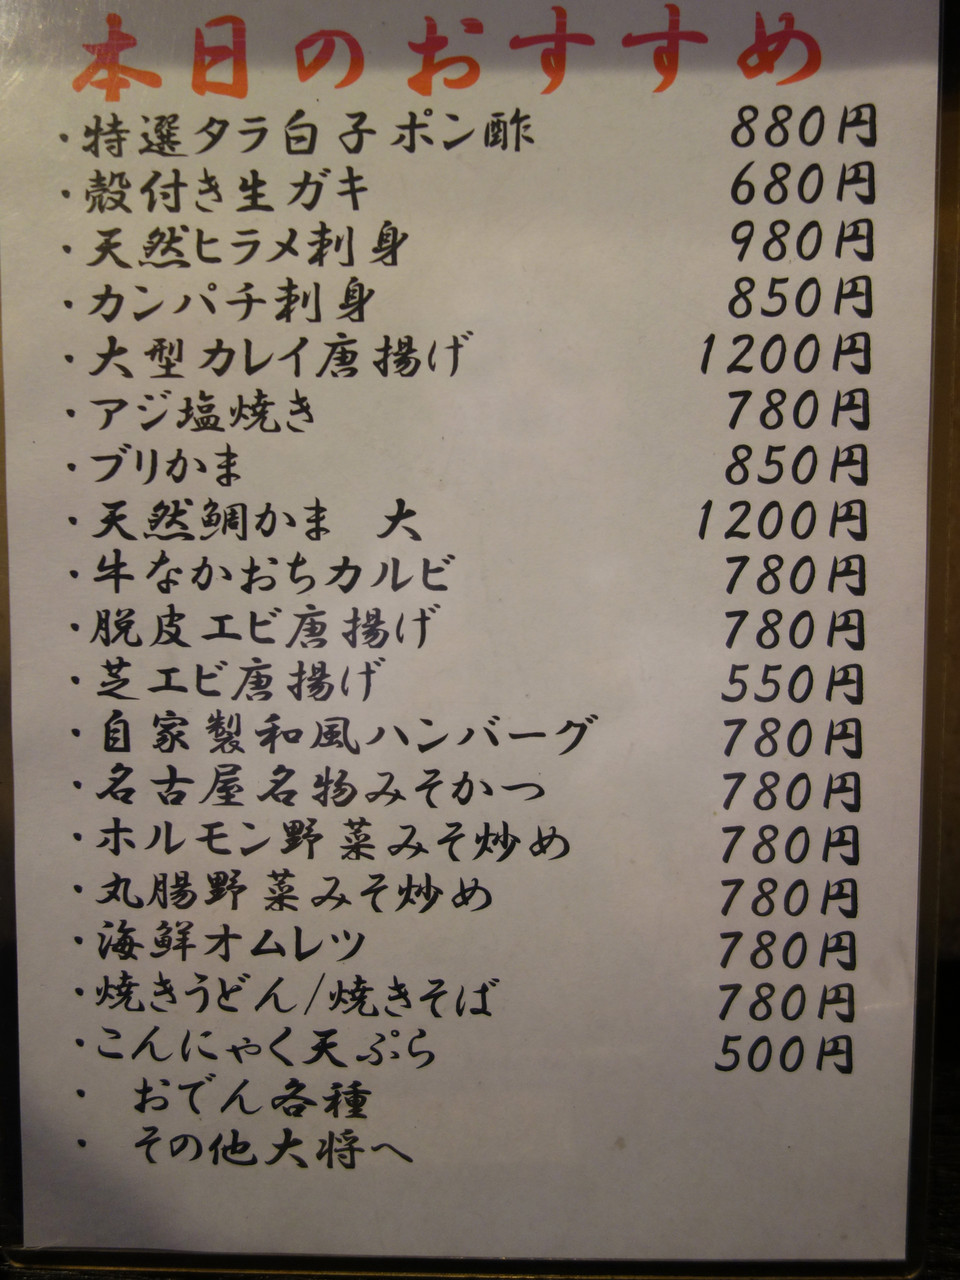 本日のおすすめ
・特選タラ白子ポン酢 880円
・殻付き生ガキ 680円
・天然ヒラメ刺身 980円
・カンパチ刺身 850円
・大型カレイ唐揚げ 1200円
・アジ塩焼き 780円
・ブリかま 850円
・天然鯛かま　大 1200円
・牛なかおちカルビ 780円
・脱皮エビ唐揚げ 780円
・芝エビ唐揚げ 550円
・自家製和風ハンバーグ 780円
・名古屋名物みそかつ 780円
・ホルモン野菜みそ炒め 780円
・丸腸野菜みそ炒め 780円
・海鮮オムレツ 780円
・焼きうどん/焼きそば 780円
・こんにゃく天ぷら 500円
・　おでん各種
・　その他大将へ